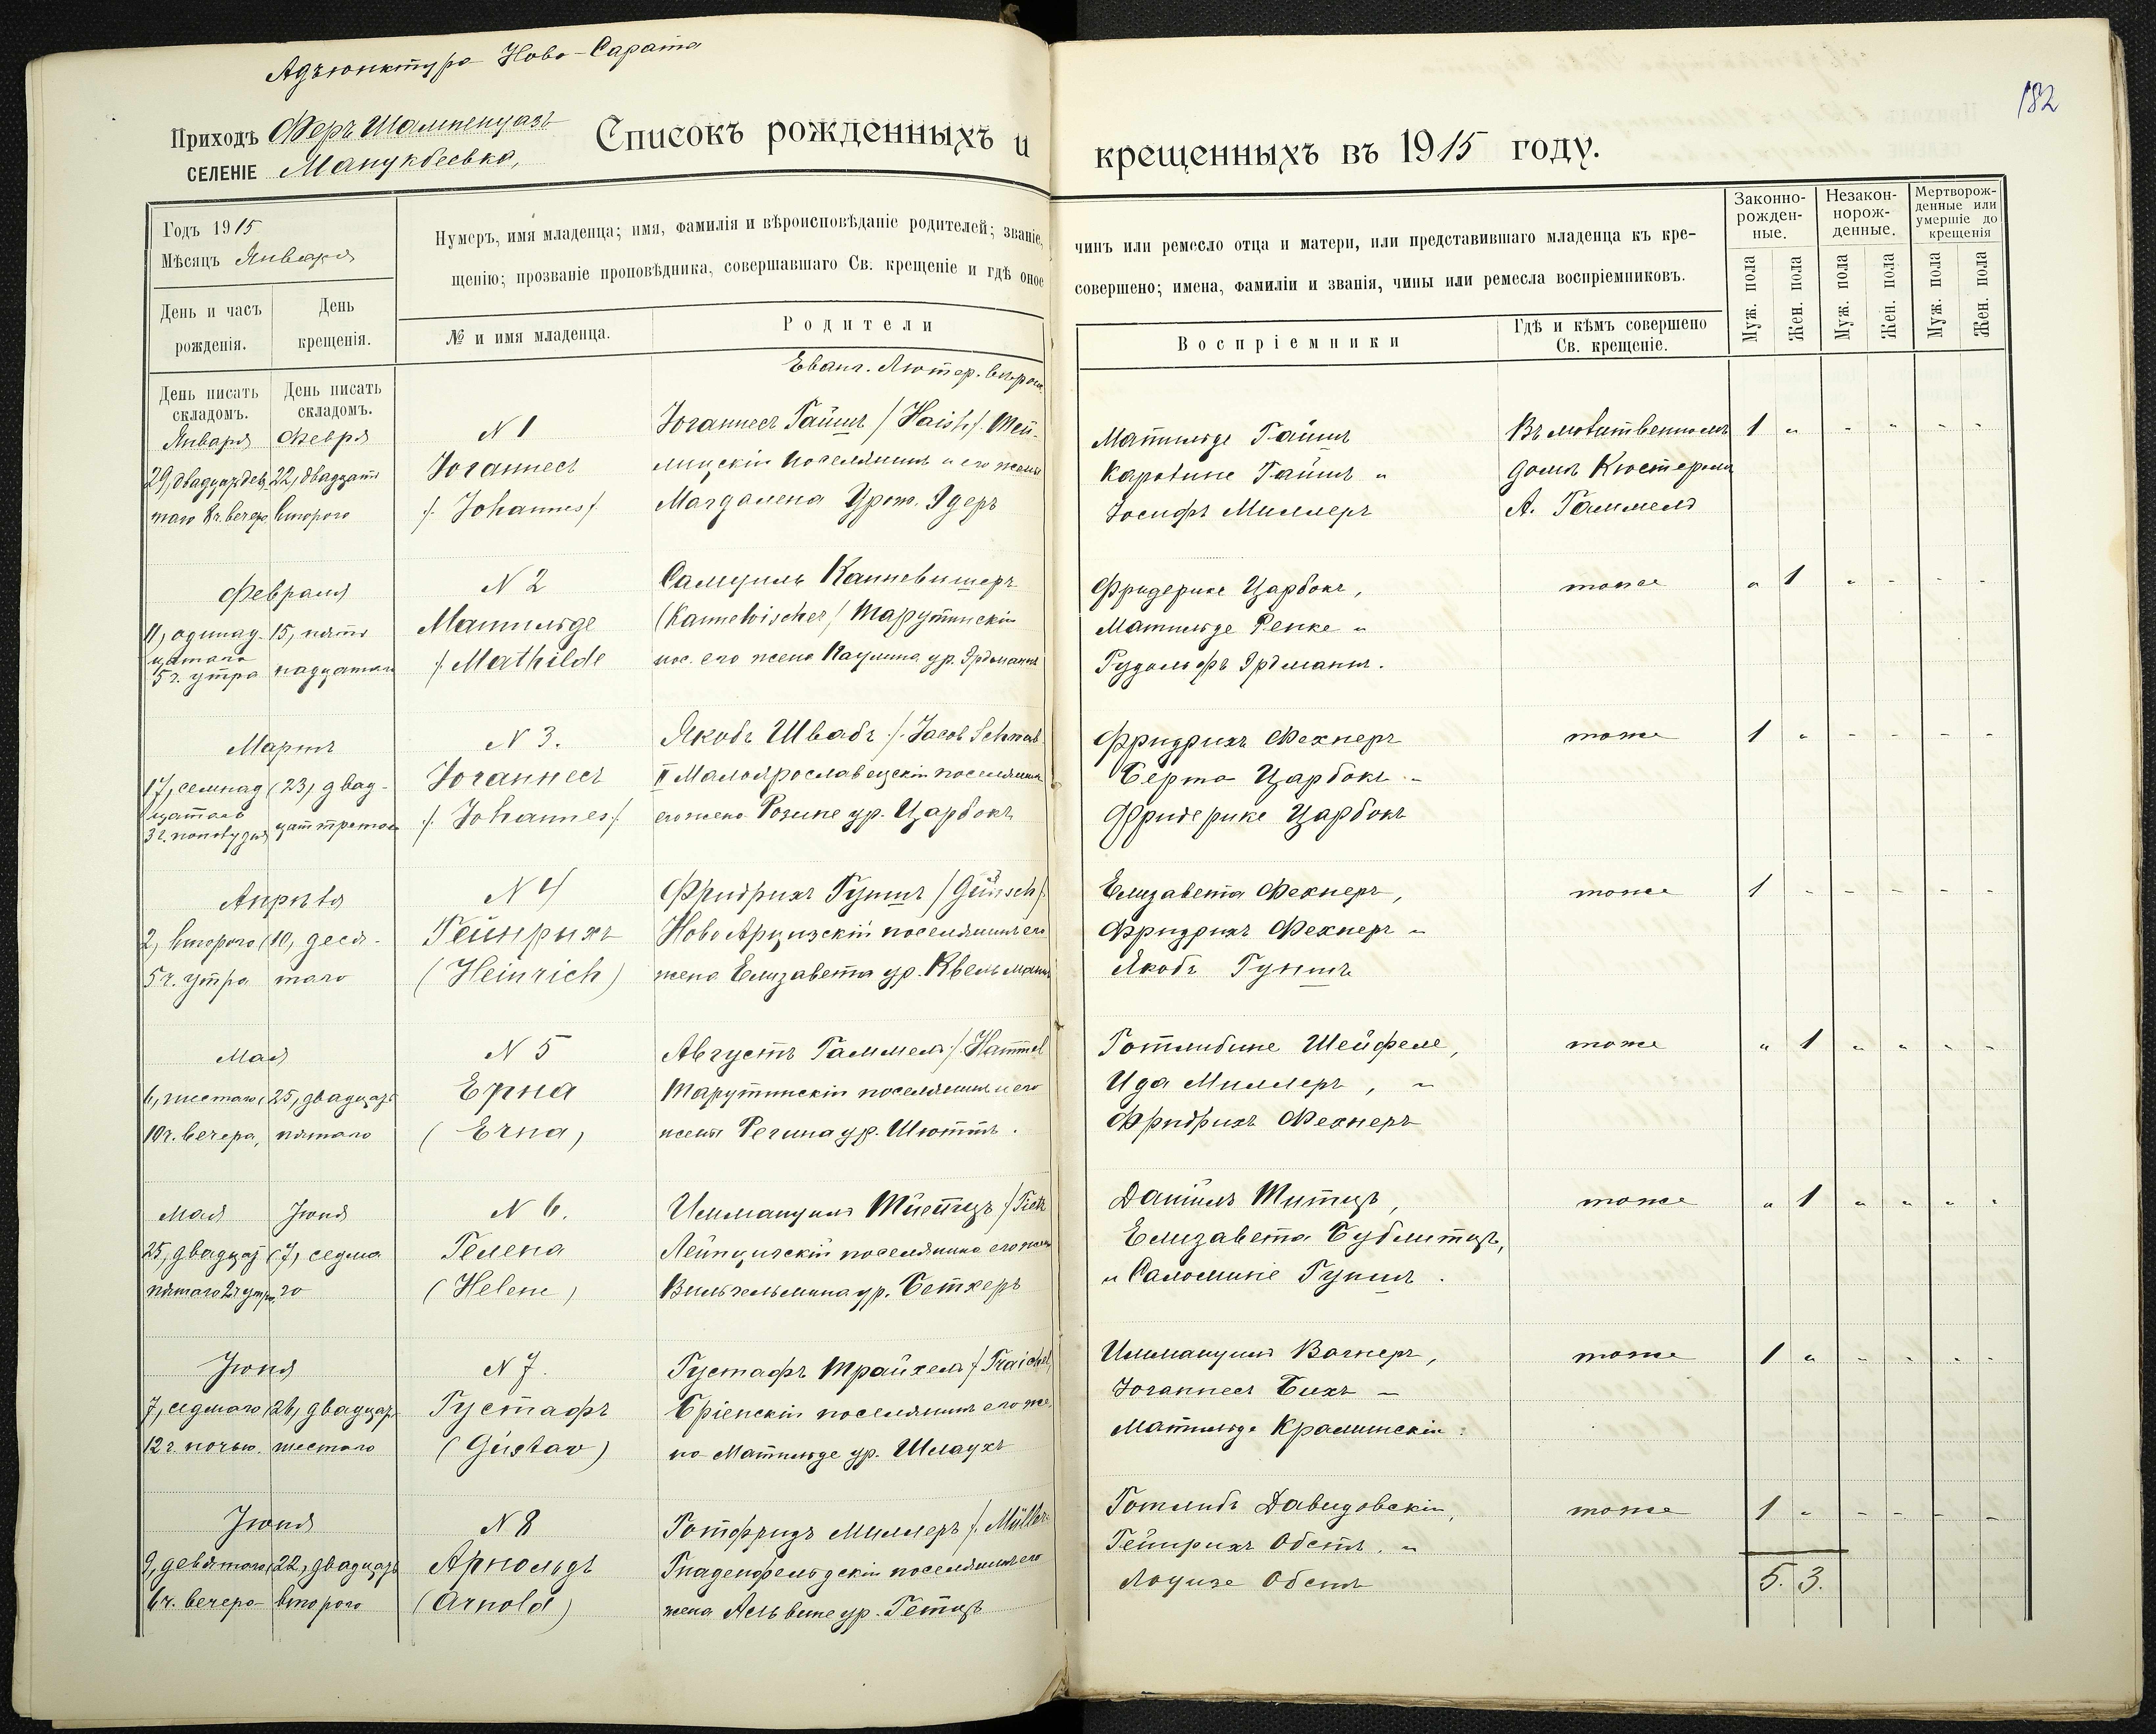 Адъюнктура Ново-Сарата
182
Приходъ Феръ Шампенуазъ
СЕЛЕНІЕ Манукбеевка,
Списокъ рожденныхъ и крещенныхъ въ 1915 году.
Годъ 1915
Мѣсяцъ Января
День и часъ рожденія.
День крещенія.
Нумеръ, имя младенца; имя, фамилія и вѣроисповѣданіе родителей; званіе, чинъ или ремесло отца и матери, или представившаго младенца къ кре-
щенію; прозваніе проповѣдника, совершавшаго Св. крещеніе и гдѣ оное совершено; имена, фамиліи и званія, чины или ремесла воспріемниковъ.
№ и имя младенца.
Родители
Воспріемники
Гдѣ и кѣмъ совершено Св. крещеніе.
Законно-рожден-ные.
Незакон-норож-денные.
Мертворож-денные или умершіе до крещенія
Муж. пола
Жен. пола
Муж. пола
Жен. пола
Муж. пола
Жен. пола
День писать складомъ.
День писать складомъ.
Еванг. Лютер. вѣроис.
Января Февря N 1 Іоганнесъ Гайшъ /Haisch/ Теп- Матильде Гайшъ Въ молитвенномъ 1 " - " - -
29, двадцатьдевя 22, двадцать Іоганнесъ лицскій поселянинъ и его жена Каролине Гайшъ " домѣ Кюстеромъ
таго 8ч. вечера второго /Johannes/ Магдалена Урож. Эдеръ Іосифъ Миллеръ А. Гаммелъ
Февраля N 2 Самуилъ Канневишеръ Фридерике Царбокъ, тоже " 1 " - - -
11, одинад- 15, пят- Матильде (Kannewischer/ Тарутинскій Матильде Ренке "
цатаго 5ч. утра надцатаго /Mathilde пос. его жена Паулина ур. Эрдманъ Рудольфъ Эрдманъ.
Мартъ N 3. Якобъ Швабъ /Jacob Schwab Фридрихъ Фехнеръ тоже 1 " - - - -
17, семнад (23, двад- Іоганнесъ II Малоярославецскій поселянинъ Берта Царбокъ -
цатаго 3ч. пополудня цать третяго /Johannes/ его жена Розине ур. Царбокъ Фридерике Царбокъ
Апрѣля N 4 Фридрихъ Гуншъ /Günsch/ Елизавета Фехнеръ, тоже 1 - - - - -
2, второго (10, деся- Гейнрихъ Ново Арцизскій поселянинъ его Фридрихъ Фехнеръ "
5ч. утра таго (Heinrich) жена Елизавета ур. Квельманъ Якобъ Гуншъ
Мая N 5 Августъ Гаммель /Hammel Готлибине Шейфеле, тоже " 1 " " - -
6, шестаго, 25, двадцать Ерна Тарутинскій поселянинъ и его Ида Миллеръ, "
10ч. вечера, пятаго (Erna) жена Регина ур. Шюттъ. Фридрихъ Фехнеръ
Мая Іюня N 6. Иммануилъ Тietzъ /Tietz Даніилъ Титцъ, тоже " 1 " " " "
25, двадцать (7, седма Гелена Лейпцигскій поселянинъ его жена Елизавета Бублитцъ,
пятаго 2ч утра го (Helene) Вильгельмина ур. Беткеръ и Саломине Гуншъ.
Іюня N 7. Густафъ Трайхель /Traichel, Иммануилъ Вагнеръ, тоже 1 " - - - -
7, седмаго (26, двадцать Густафъ Бріенскій поселянинъ его же- Іоганнесъ Бихъ -
12ч. ночью. шестаго (Gustav) на Матильде ур. Шлаухъ Матильде Краминскій.
Іюня N 8 Готфридъ Миллеръ /Müller Готлибъ Давидовскій, тоже 1 " - - - -
9, девятаго (22, двадцать Арнольдъ Гнаденфельдскій поселянинъ его Гейнрихъ Обстъ. "
6ч. вечера второго (Arnold) жена Альвине ур. Гетцъ Лоуизе Обстъ 5. 3.